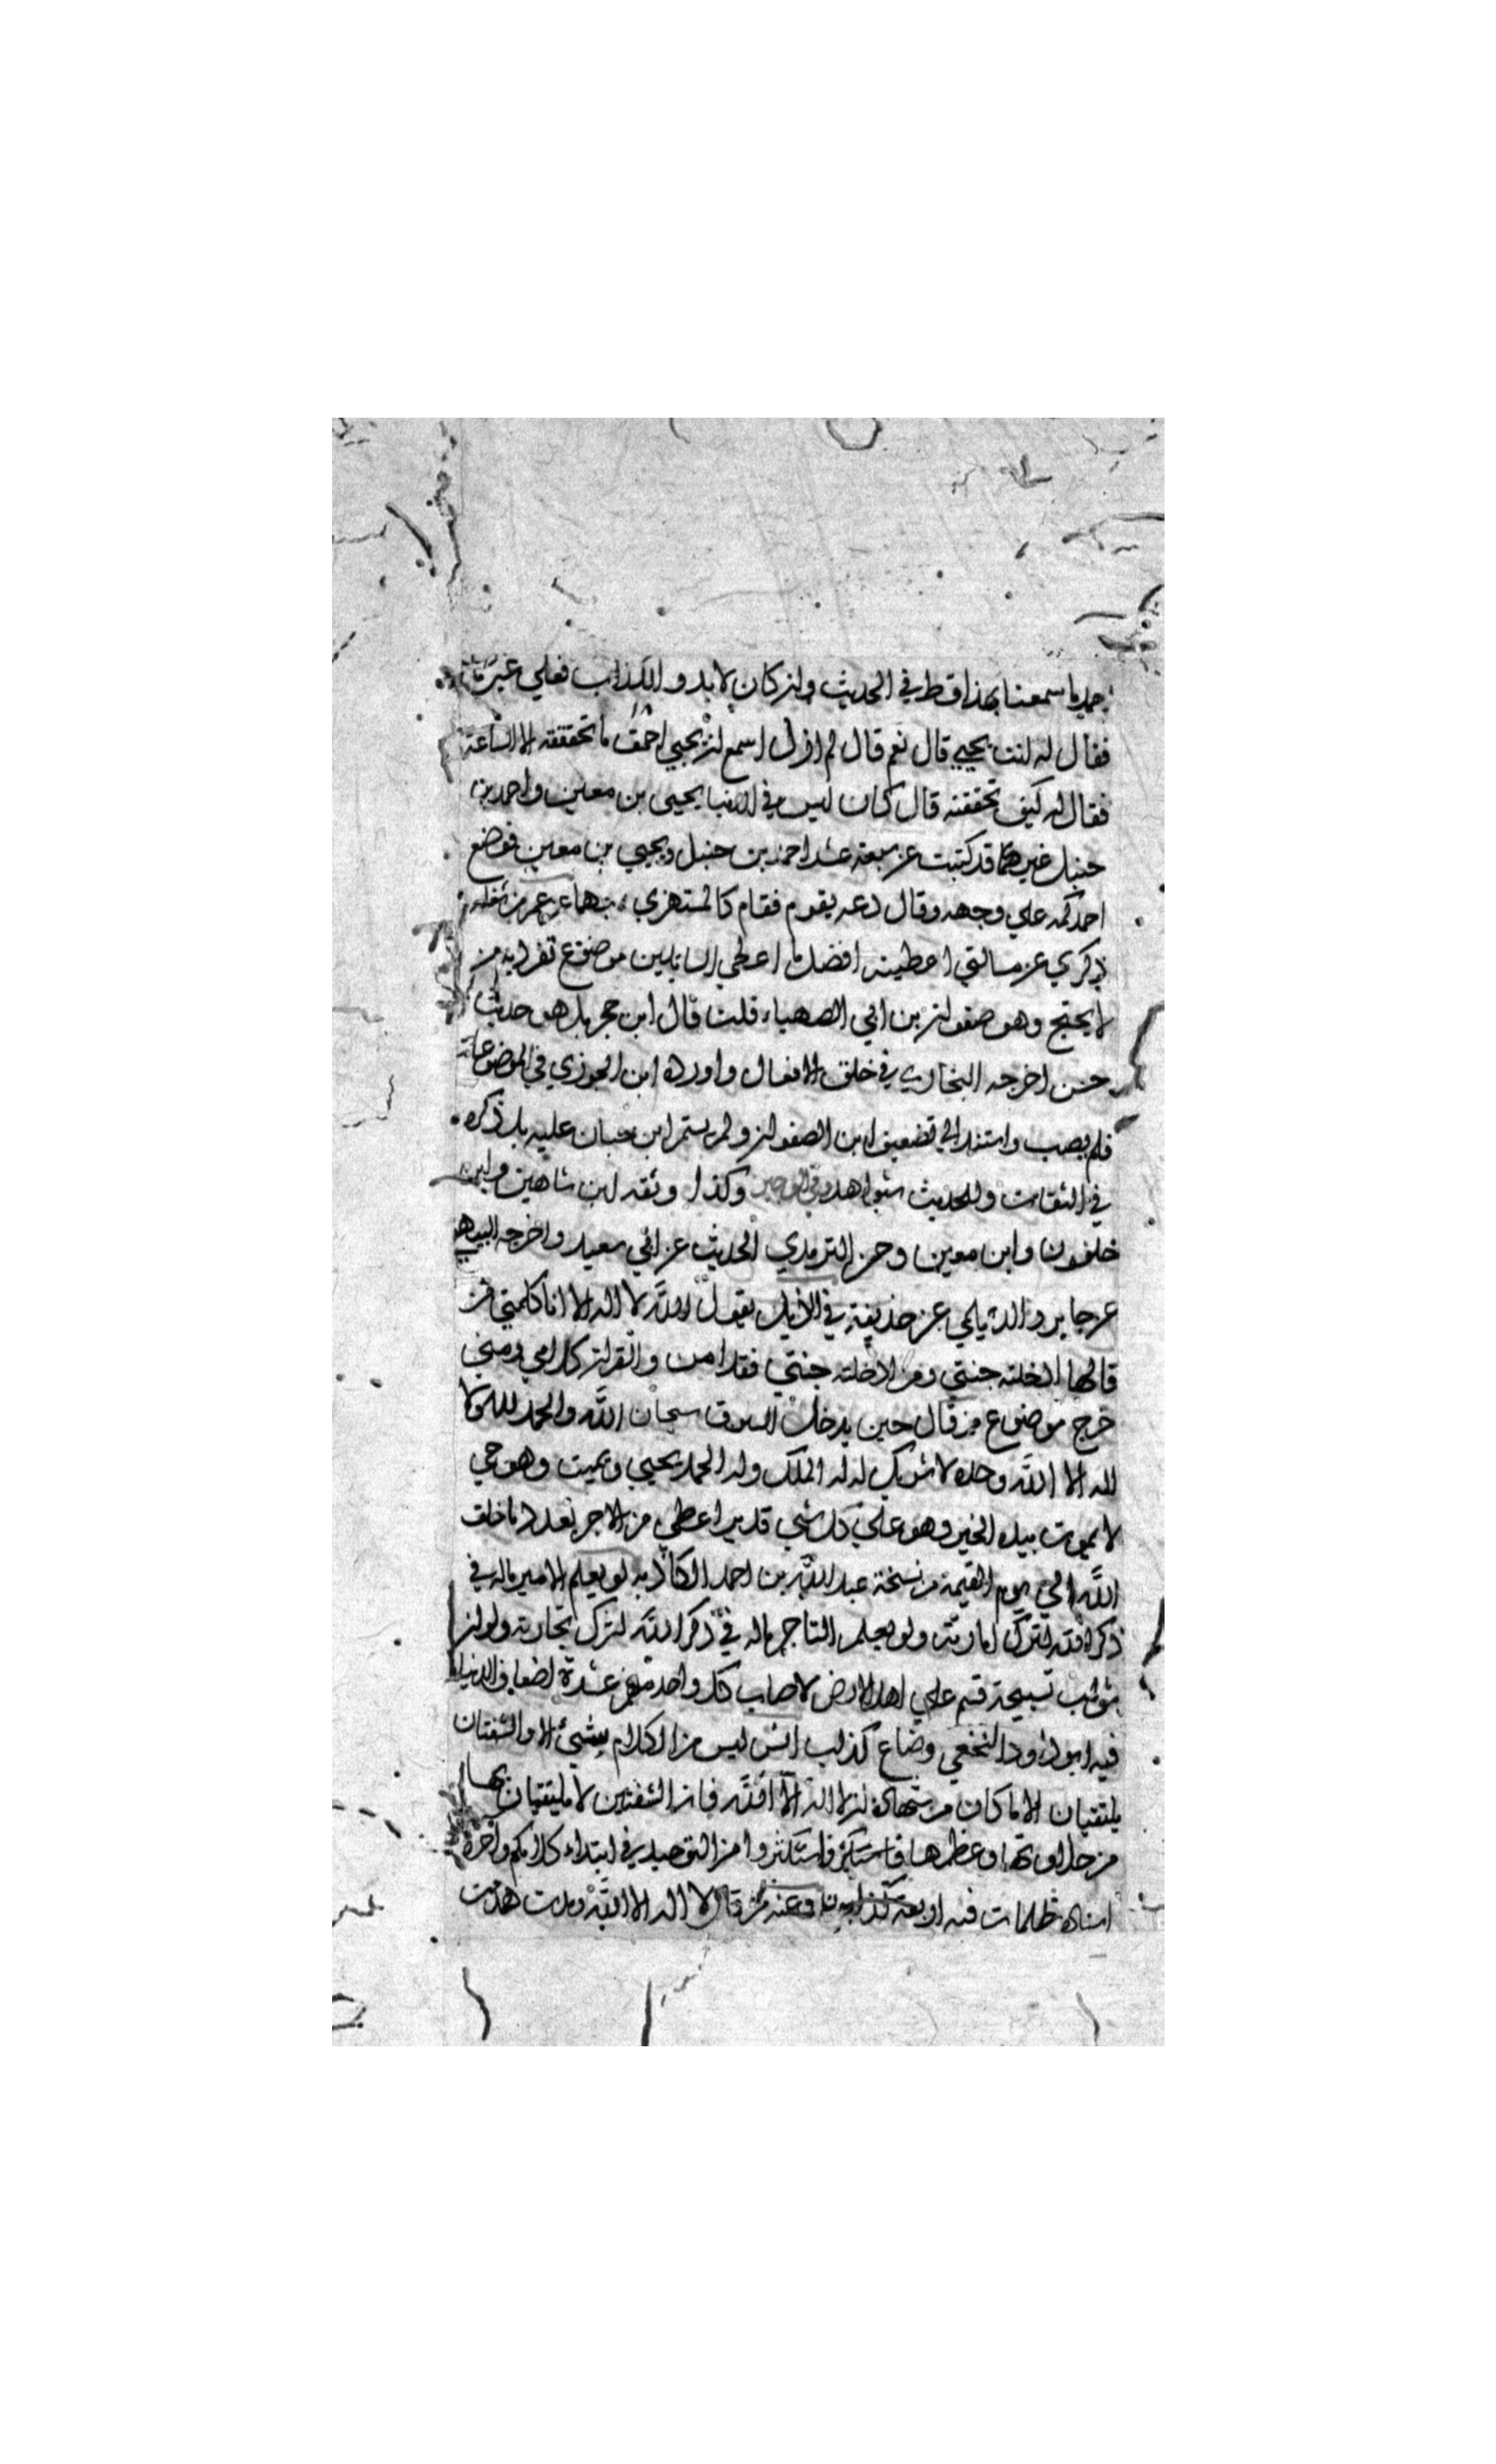 حمد ما سمعنا بهذا قط في الحديث وان كان لا بد والكذب فعلي غيرنا
فقال له انت يحيي قال نعم قال لم ازل اسمع ان يحيي احمق ما تحققته الا الساعة
فقال له كيف تحققته قال كان ليس في الدنيا يحيى بن معين واحمد بن
حنبل غيركما قد كتبت عن سبعة عشر احمد بن حنبل ويحيي بن معين فوضع
احمد كمه علي وجهه وقال دعه يقوم فقام كالمستهزي بهما عن عمر من شغله
ذكري عن مسالتي اعطيته افضل ما اعطي السايلين موضوع تفرد به من
لا يحتج وهو صفوان بن ابي الصهباء قلت قال ابن حجر بل هو حديث
حسن اخرجه البخاري في خلق الافعال واورده ابن الجوزي في الموضوعات
فلم يصب واستند الي تضعيف ابن الصفوان ولم يستمر ابن حبان عليه بل ذكره
في الثقات وللحديث شواهد وكذا وثقه ابن شاهين وابن
خلفون وابن معين وحسن الترمذي الحديث عن ابي سعيد واخرجه البيهقي
عن جابر والديلمي عن حذيفة في الذيل يقول الله لا اله الا انا كلمتي من
قالها ادخلته جنتي ومن ادخلته جنتي فقد امن والقران كلامي ومني
خرج موضوع من قال حين يدخل السوق سبحان الله والحمد لله ولا
اله الا الله وحده لا شريك له له الملك وله الحمد يحيي ويميت وهو حي
لا يموت بيده الخير وهو علي كل شي قدير اعطي من الاجر بعدد ما خلق
الله الي يوم القيمة من نسخة عبد الله بن احمد الكاذبه لو يعلم الامير ماله في
ذكر الله لترك امارته ولو يعلم التاجر ماله في ذكر الله لترك تجارته ولو ان
ثواب تسبيحة قسم علي اهل الارض لاصاب كل واحد منهم عشرة اضعاف الدنيا
فيه ابو داود النخعي وضاع كذاب انس ليس من الكلام بشيئ الا والشفتان
يلتقيان الا ما كان من شهادة ان لا اله الا الله فان الشفتين لا يلتقيان بها
من حلاوتها وعظمها فاستكثروا من التوحيد في ابتداء كلامكم واخره
اسناده ظلمات فيه اربعة كذابون وعنه من قال لا اله الا الله ومدت هدمت